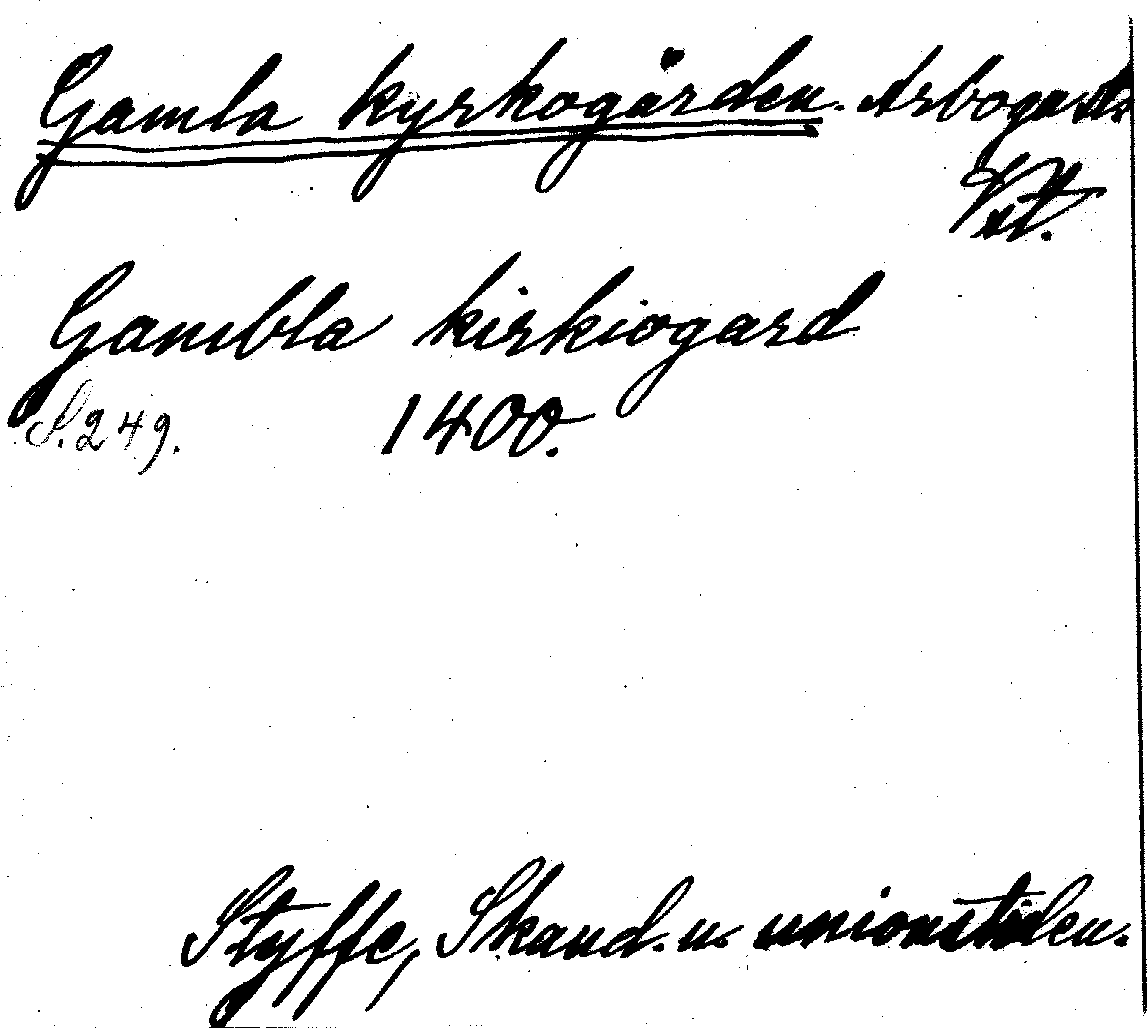 Gamla kyrkogården. Arboga st.
Vstt.
Gambla kirkiogard
S. 249. 1400.
Styffe, Skand. u. unionstiden.